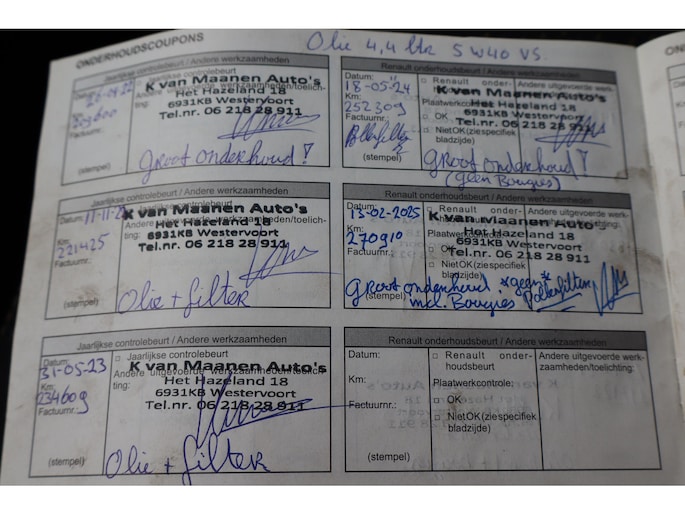 ONDERHOUDSCOUPONS
Olie 4,4 ltr 5W40 VS.
Jaarlijkse controlebeurt / Andere werkzaamheden
Datum:
Km:
Factuurnr.:
K van Maanen Auto's
Het Hazeland 18
6931KB Westervoort
Tel.nr. 06 218 28 911
(stempel)
Groot onderhoud!
Jaarlijkse controlebeurt / Andere werkzaamheden
Datum:
Km:
221425
Factuurnr.:
K van Maanen Auto's
Het Hazeland 18
6931KB Westervoort
Tel.nr. 06 218 28 911
(stempel)
Olie + filter
Jaarlijkse controlebeurt / Andere werkzaamheden
Datum:
31-05-23
□ Jaarlijkse controlebeurt
Andere uitgevoerde werkzaamheden/toelich-
ting:
Km:
234609
Factuurnr.:
K van Maanen Auto's
Het Hazeland 18
6931KB Westervoort
Tel.nr. 06 218 28 911
(stempel)
Olie + filter
Renault onderhoudsbeurt / Andere werkzaamheden
Datum:
18-05-24
Km:
252309
Factuurnr.:
K van Maanen Auto's
Het Hazeland 18
6931KB Westervoort
Tel.nr. 06 218 28 911
□ OK
□ Niet OK (zie specifiek
bladzijde)
(stempel)
Groot onderhoud!
(geen Bougies)
Renault onderhoudsbeurt / Andere werkzaamheden
Datum:
13-02-2025
Km:
270910
Factuurnr.:
K van Maanen Auto
Het Hazeland 18
6931KB Westervoort
Tel.nr. 06 218 28 911
□ Niet OK (zie specifiek
bladzijde)
(stempel)
Groot onderhoud. *geen*
incl. Bougies Pollenfilter
Renault onderhoudsbeurt / Andere werkzaamheden
Datum:
□ Renault onder-
houdsbeurt
Andere uitgevoerde werk-
zaamheden/toelichting:
Km:
Plaatwerkcontrole:
Factuurnr.:
□ OK
□ Niet OK (zie specifiek
bladzijde)
(stempel)